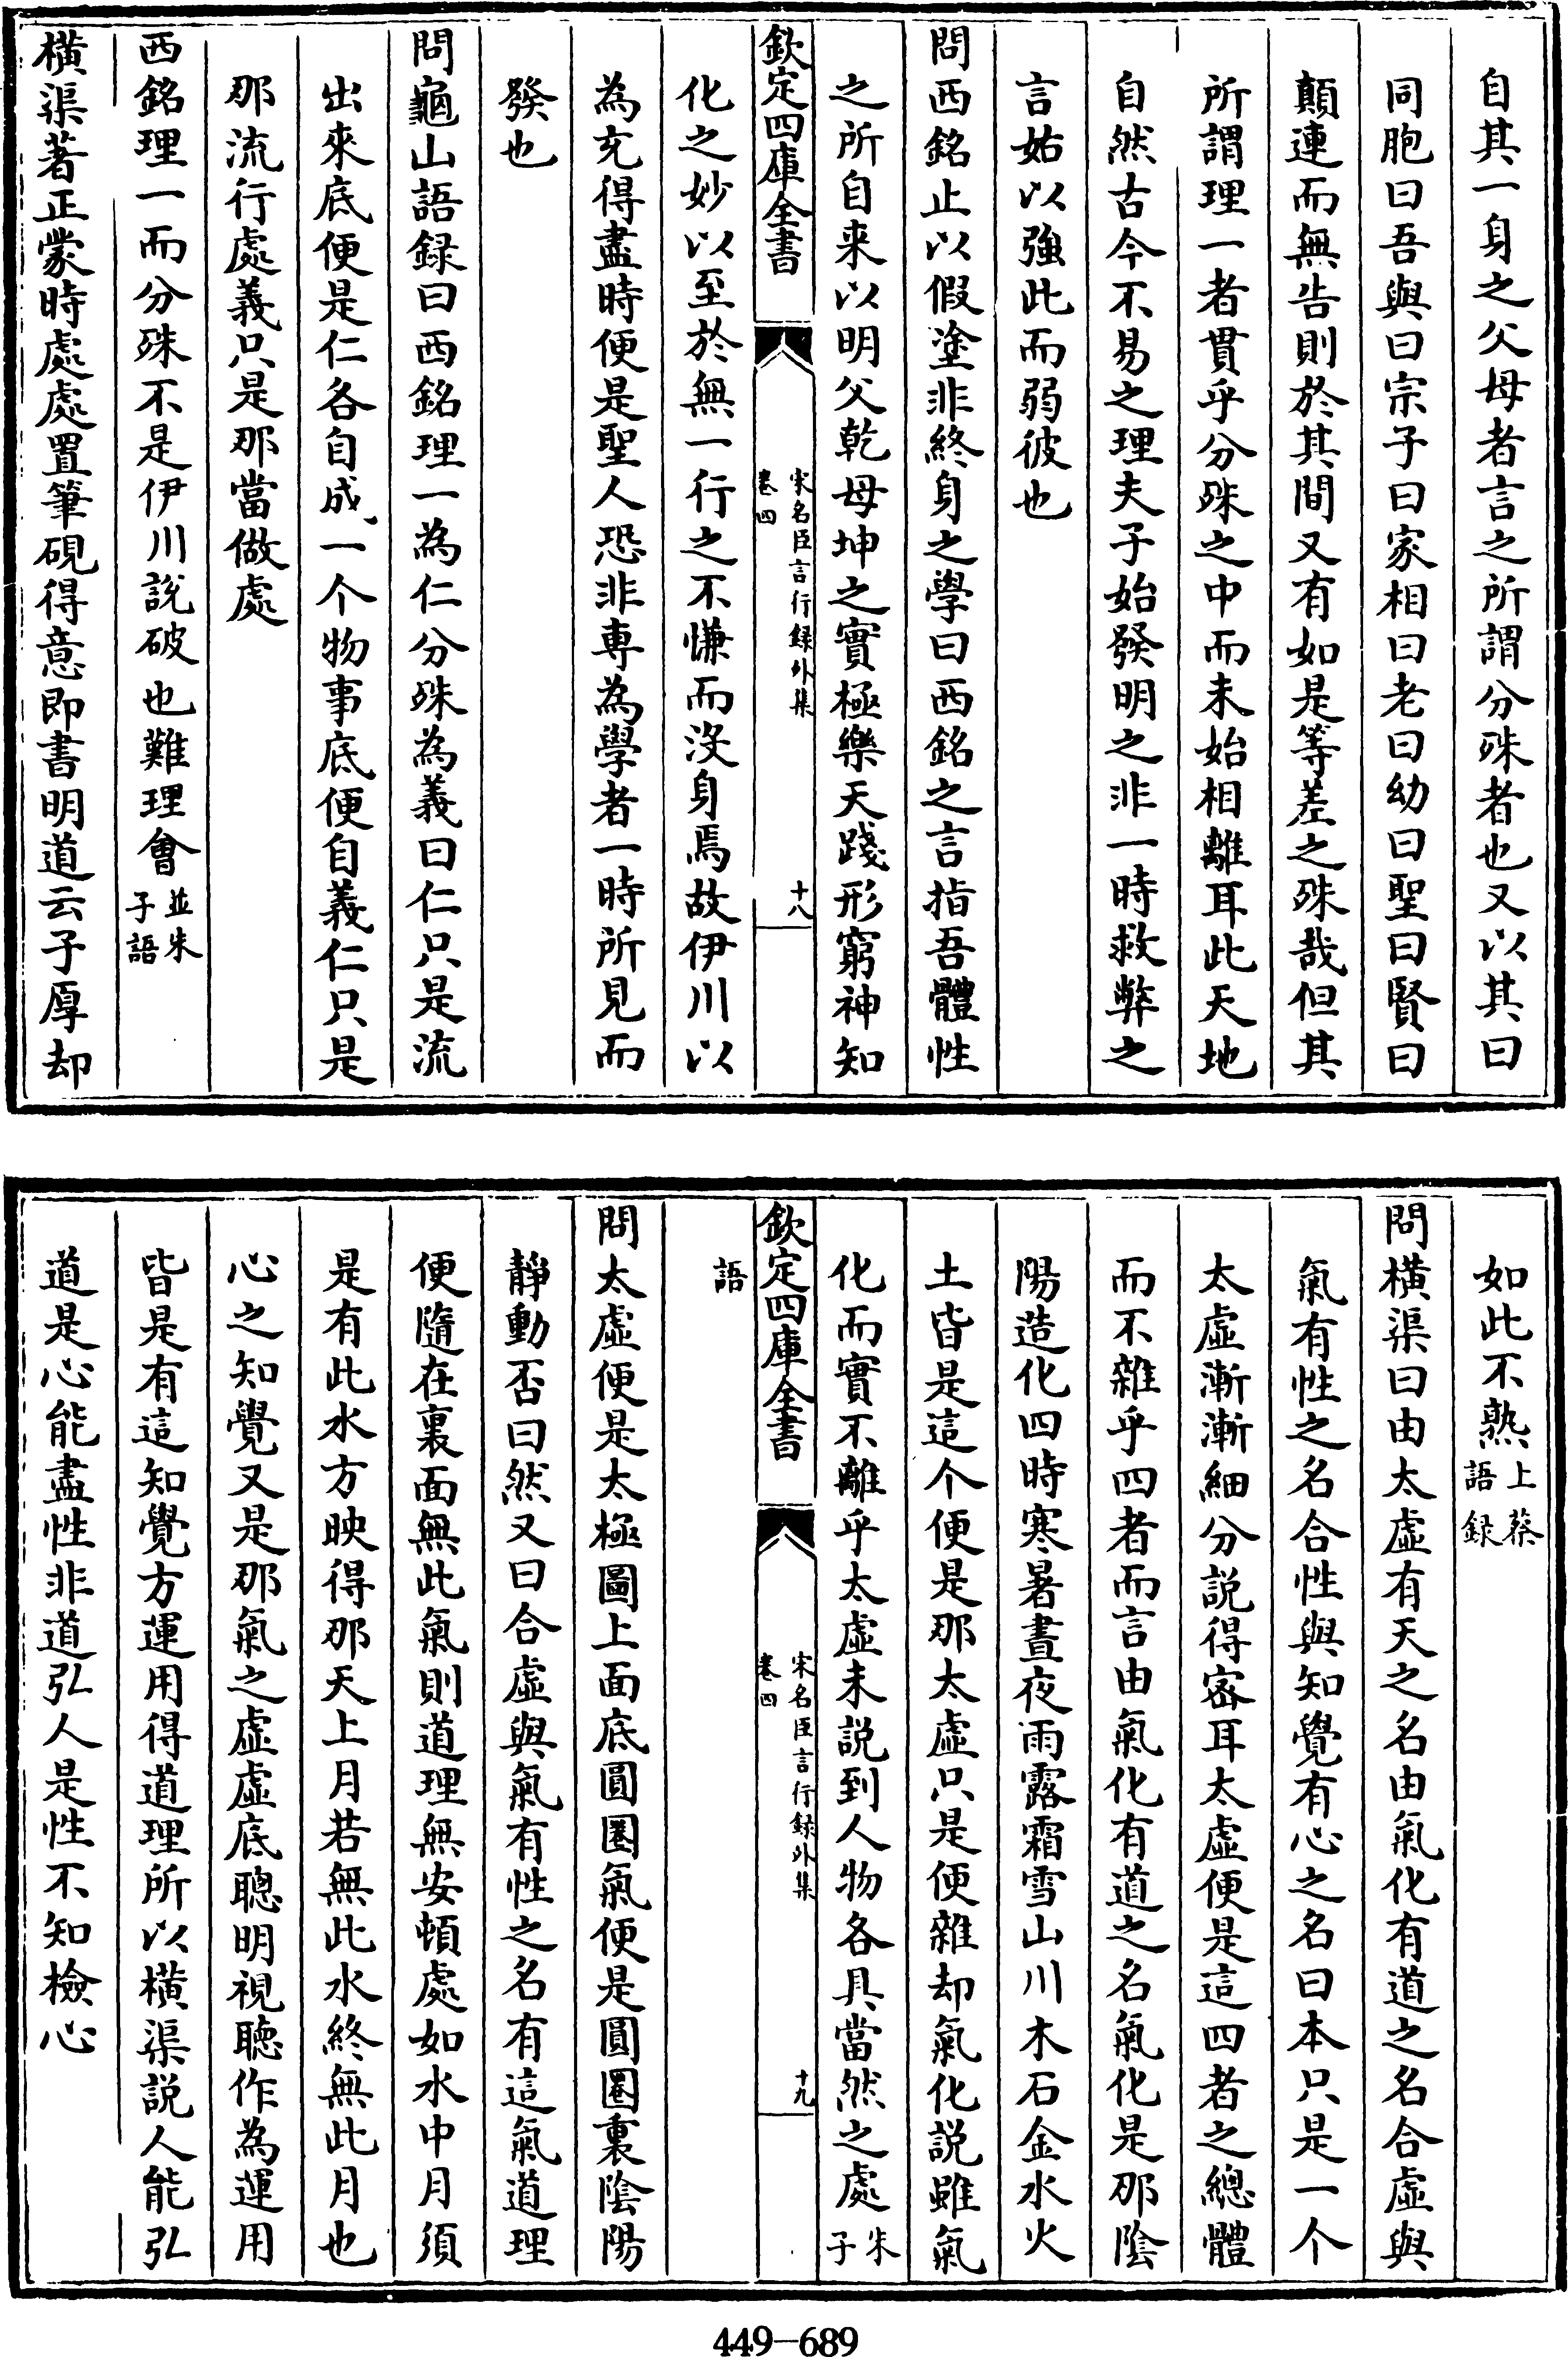 自其一身之父母者言之所謂分殊者也又以其曰
同胞曰吾與曰宗子曰家相曰老曰幼曰聖曰賢曰
顛連而無告則於其間又有如是等差之殊哉但其
所謂理一者貫乎分殊之中而未始相離耳此天地
自然古今不易之理夫子始發明之非一時救弊之
言姑以強此而弱彼也
問西銘止以假塗非終身之學曰西銘之言指吾體性
之所自来以明父乾母坤之實極樂天踐形窮神知
欽定四庫全書
宋名臣言行録外集
卷四
十八
化之妙以至於無一行之不慊而沒身焉故伊川以
為充得盡時便是聖人恐非專為學者一時所見而
發也
問龜山語録曰西銘理一為仁分殊為義曰仁只是流
出來底便是仁各自成一个物事底便自義仁只是
那流行處義只是那當做處
西銘理一而分殊不是伊川說破也難理會並朱
子語
橫渠著正蒙時處處置筆硯得意即書明道云子厚却
如此不熟上蔡
語録
問橫渠曰由太虛有天之名由氣化有道之名合虛與
氣有性之名合性與知覺有心之名曰本只是一个
太虛漸漸細分説得宻耳太虛便是這四者之總體
而不雜乎四者而言由氣化有道之名氣化是那陰
陽造化四時寒暑晝夜雨露霜雪山川木石金水火
土皆是這个便是那太虛只是便雜却氣化説雖氣
化而實不離乎太虛未説到人物各具當然之處朱
子
欽定四庫全書
宋名臣言行録外集
卷四
十九
語
問太虛便是太極圖上面底圓圈氣便是圓圈裏陰陽
靜動否曰然又曰合虛與氣有性之名有這氣道理
便隨在裏面無此氣則道理無安頓處如水中月須
是有此水方映得那天上月若無此水終無此月也
心之知覺又是那氣之虛虛底聰明視聽作為運用
皆是有這知覺方運用得道理所以橫渠説人能弘
道是心能盡性非道弘人是性不知檢心
449-689